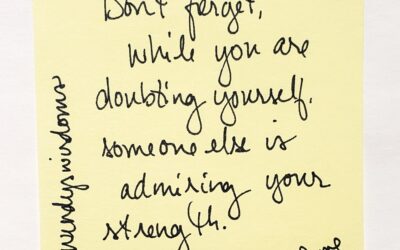 Don't forget,
while you are
doubting yourself.
someone else is
admiring your
strength.